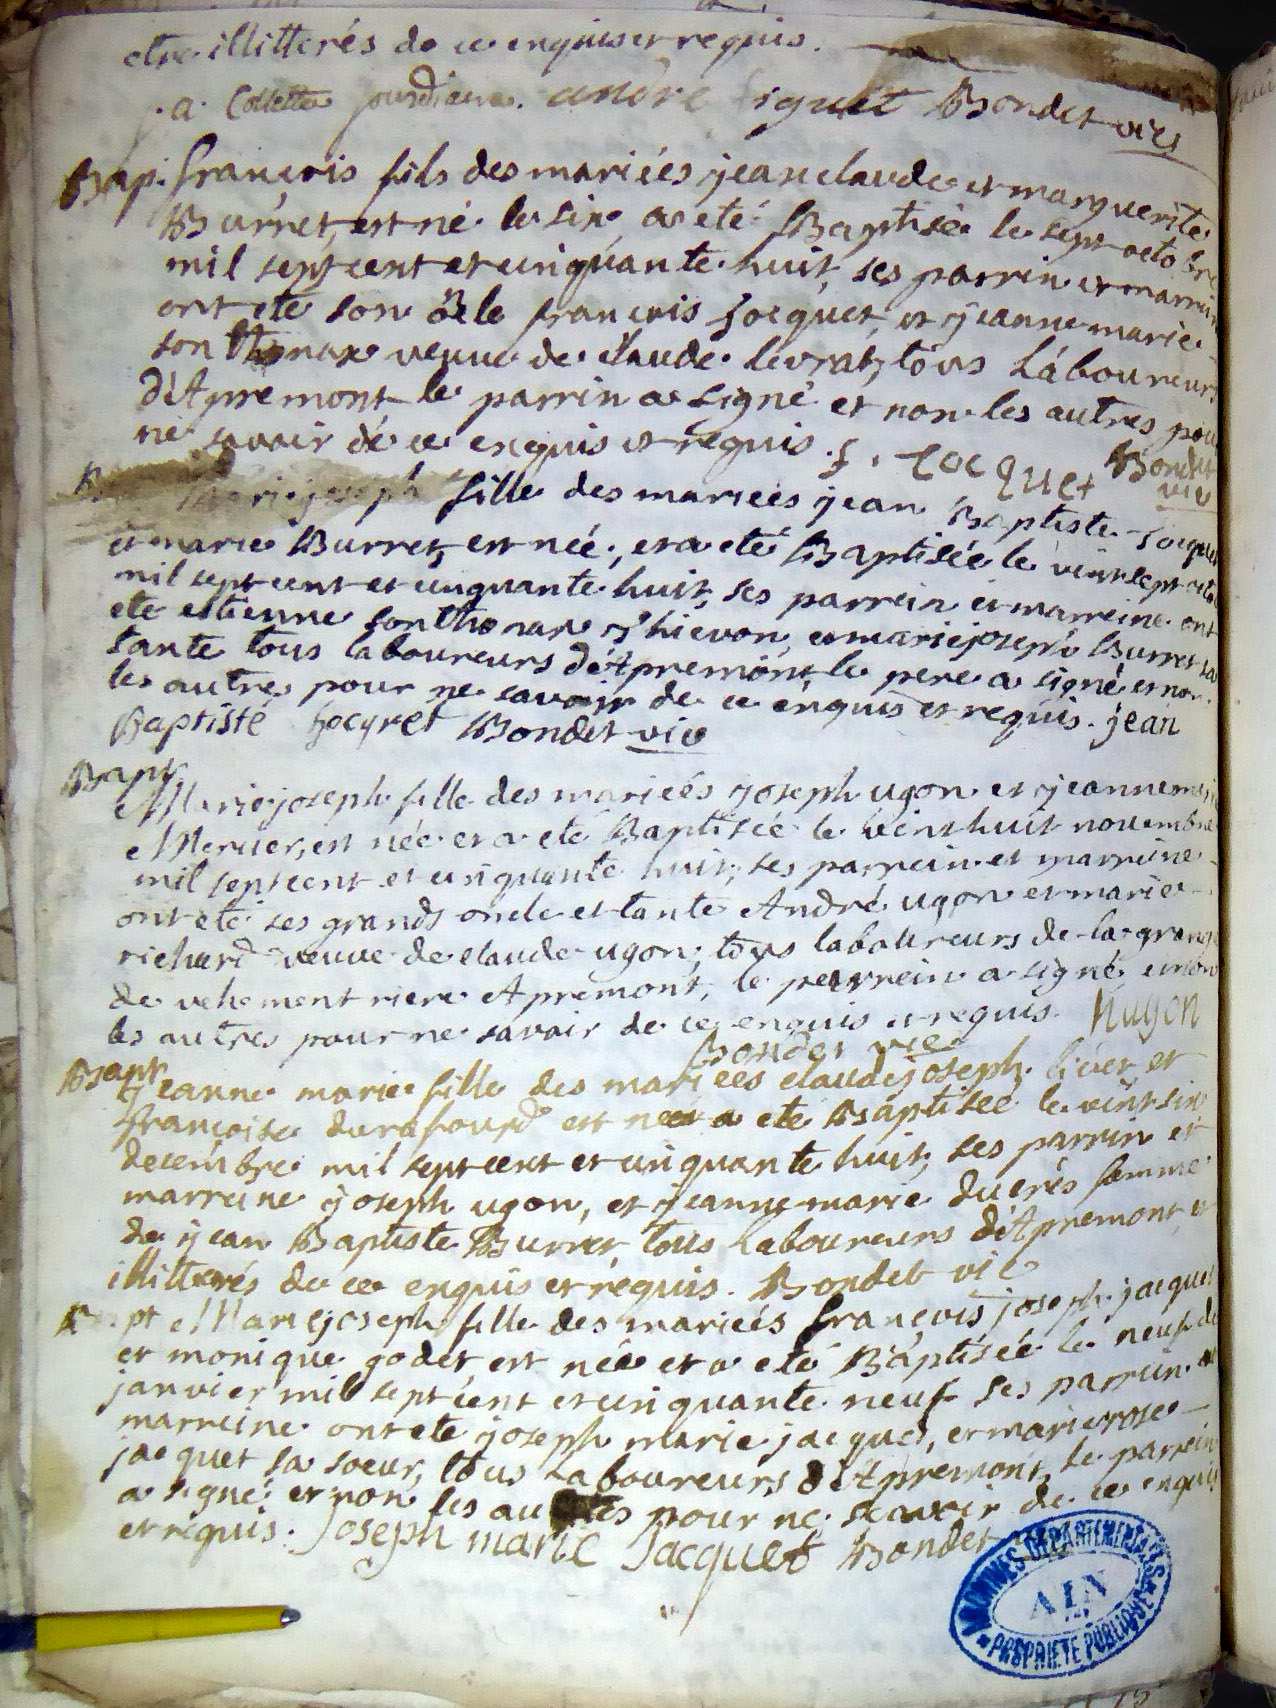 etre illitterés de ce enquis et requis.
p. a. Collette jourdiaux. andré figuet Bondet vic
Bap. françois fils des mariées jean claude et marguerite
Burret, est né le six, a eté Baptisé le sept octobre
mil sept cent et cinquante huit, ses parrin et marrin
ont eté son ocle françois Jocquet, et jeanne marie
sonthonax veuve de claude levrat, tous Laboureurs
d'Apremont le parrin a signé et non les autres pour
ne savoir de ce enquis et requis. f. Jocquet Bondet
vic
Marie joseph fille des mariées jean Baptiste Jocquet
et marie Burret, est née, et a eté Baptisée le vint sept octo
mil sept cent et cinquante huit, ses parrein et marreine ont
eté estienne sonthonax et marie joseph Burret sa
tante tous laboureurs d'Apremont, le pere a signé et non
les autres pour ne savoir de ce enquis et requis. jean
Baptiste Jocqret Bondet vic
Bapt
Marie joseph fille des mariées joseph ugon et jeanne marie
Mercier, est née et a eté Baptisée le vint huit novembre
mil sept cent et cinquante huit, ses parrein et marreine
ont eté ses grands oncle et tante André ugon et marie
richard veuve de claude ugon, tous laboureurs de la grange
de vehement riere Apremont, le parrein a signé, et non
les autres pour ne savoir de ce enquis et requis. hugon
Bondet vic
Bapt
Jeanne marie fille des mariées claude joseph livet et
françoise durafourd est née et a eté Baptisée le vint six
decembre mil sept cent et cinquante huit, ses parrin et
marreine joseph ugon, et jeanne marie ducrés femme
de jean Baptiste Burret, tous Laboureurs d'Apremont, et
illitterés de ce enquis et requis. Bondet vic
Bapt Marie joseph fille des mariées françois joseph jacquet
et monique godet est née et a eté Baptisée le neuf de
janvier mil sept cent et cinquante neuf ses parrein et
marreine ont eté joseph marie jacquet, et marie rose
jacquet sa soeur, tous Laboureurs d'Apremont, le parrein
a signé et non les autres pour ne scavoir de ce enquis
et requis. Joseph marie Jacquet Bondet
ARCHIVES DEPARTEMENTALES
AIN
PROPRIETE PUBLIQUE